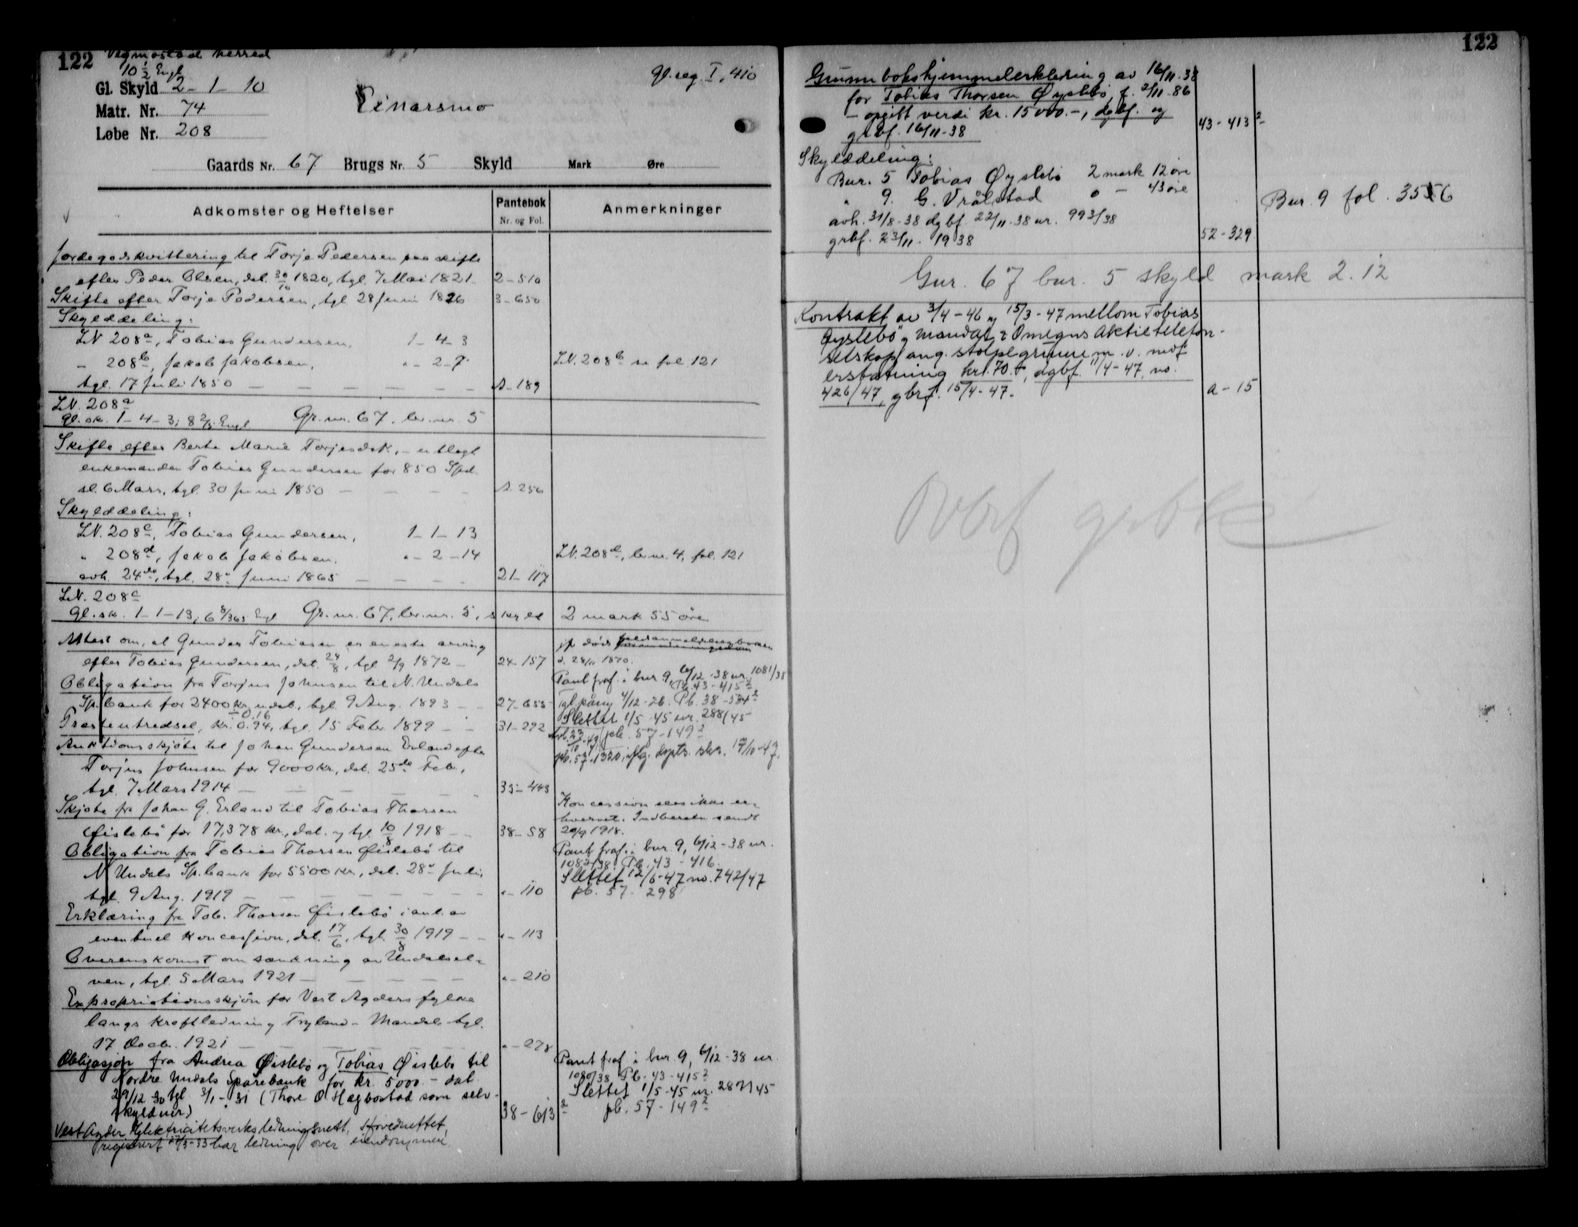 122
Vigmostad herred
10 1/2 Engl
Gl. Skyld 2-1-10
Matr. Nr. 74
Løbe Nr. 208
Einarsmo
gl. reg. I, 410
Gaards Nr. 67 Brugs Nr. 5 Skyld Mark Øre
Adkomster og Heftelser
Pantebok
Nr. og Fol.
Anmerkninger
Jordegodskvittering til Torje Pedersen paa skifte
efter Peder Olsen, dat. 30/10 1820, tgl. 7 Mai 1821 2-510
Skifte efter Torje Pedersen, tgl 28 juni 1826 3-650
Skylddeling:
LN. 208a, Tobias Gundersen, 1-4-3
" 208b, Jakob Jakobsen, " - 2-7 LN. 208b se fol 121
tgl. 17 Juli 1850 - - - - - - s-189
LN. 208a
gl. sk. 1-4-3; 8 2/3 Engl Gr. nr. 67, br. nr. 5
Skifte efter Berte Marie Torjesdat., - utlagt
enkemanden Tobias Gundersen for 850 Spd.
sl. 6 Mars, tgl. 30 juni 1850 - - - - s. 256
Skylddeling:
LN. 208c, Tobias Gundersen, 1-1-13
" 208d, Jakob Jakobsen, " - 2-14 LN. 208d, br. nr. 4, fol. 121
avh. 24de, tgl. 28e Juni 1865 - - - - 21-117
LN. 208c
gl. sk. 1-1-13, Engl Gr. nr. 67, br. nr. 5, skyld 2 mark 55 øre
Attest om, at Gunder Tobiassen er eneste arving
efter Tobias Gundersen, dat. 24/8, tgl 2/9 1872 - 24-157
Obligation fra Torjus Johnsen til N. Undals
Sp.bank for 2400 kr, udat., tgl. 9 Aug. 1893 - - 27-655
Pant fraf. i bur 9, 6/12-38 nr. 1081/38
Pb. 43-415 2
Slettet 1/5-45 nr. 288/45
pb. 57-149 2
Præstentredsel, kr. 0.94, tgl. 15 Febr 1899 - - 31-292
Auktionsskjøte til Johan Gundersen Erland efter
Torjus Johnsen for 9000 kr., dat. 25de Febr.,
tgl. 7 Mars 1914 - - - - - 35-443
Skjøte fra Johan G. Erland til Tobias Thorsen
Øislebö for 17,378 kr., dat. og tgl. 10/8 1918 - - 38-58
Koncession sees ikke er-
hvervet. Indberetn. sendt
20/9 1918.
Obligation fra Tobias Thorsen Øislebö til
N. Undals Sp.bank for 5500 kr., dat. 28e Juli,
tgl. 9 Aug. 1919 - - - - - "-110
Pant fraf. i bur 9, 6/12-38 nr.
1082/38, Pb. 43-416.
Slettet 12/6-47 no. 742/47
pb. 57-298
Erklæring fra Tob. Thorsen Øislebö i anl. av
eventuel koncession, dat. 17/6, tgl. 30/8 1919 - - "-113
Overenskomst om sænkning av Undalsel-
ven, tgl. 5 Mars 1921 - - - - "-210
Expropriationsskjön for Vest Agders fylke
langs kraftledning Tryland - Mandal, tgl.
17 Decb. 1921 - - - - - "-278
Obligasjon fra Andrea Øislebø og Tobias Øislebø til
Nordre Undals Sparebank for kr. 5000.- dat
29/12 30 tgl 3/1-31 (Thore O Hægbostad som selv-
skyldner) 38-613 2
Pant fraf. i bur 9, 6/12-38 nr.
1080/38 Pb. 43-415 2
Slettet 1/5-45 nr. 287/45
pb. 57-149 2
Vest Agder Elektricitetsverks ledningsnett, Hovednettet,
registrert 17/3-33 har ledning over eiendommen
122
Grunnbokshjemmelerklæring av 16/11.38
for Tobias Thorsen Øyslebø, f. 2/11.86
- opgitt verdi kr. 15000.-, dgbf. og
grbf. 16/11-38 43-413 2
Skylddeling:
Bur. 5 Tobias Øyslebö 2 mark 12 øre
" 9. G. Vrålstad 0 - 43 øre Bur. 9 fol. 3556
avh. 31/8-38 dgbf 22/11-38 nr. 993/38
grbf. 23/11. 1938 52-329
Gur. 67 bur. 5 skyld mark 2.12
Kontrakt av 3/4-46 og 15/3-47 mellom Tobias
Øyslebö og Mandal & Omegns Aktietelefon-
selskap ang. stolpegrunn m.v. mot
erstatning kr. 70.-, dgbf. 11/4-47, no.
426/47, gbrf. 15/4-47. a-15